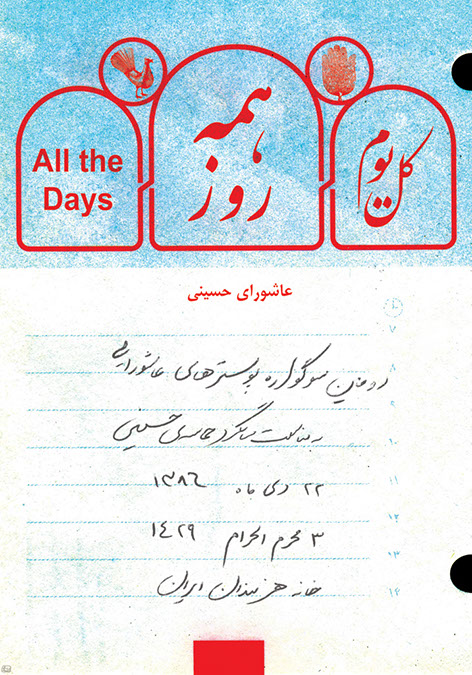 کل یوم
همه روز
All the
Days
عاشورای حسینی
۷
۸
دومین سوگواره پوسترهای عاشورایی
۹
به مناسبت سالگرد حماسه‌ی حسینی
۱۰
۲۲ دی ماه ۱۳۸۶
۱۱
۱۲
۳ محرم الحرام ۱۴۲۹
۱۳
خانه هنرمندان ایران
۱۴